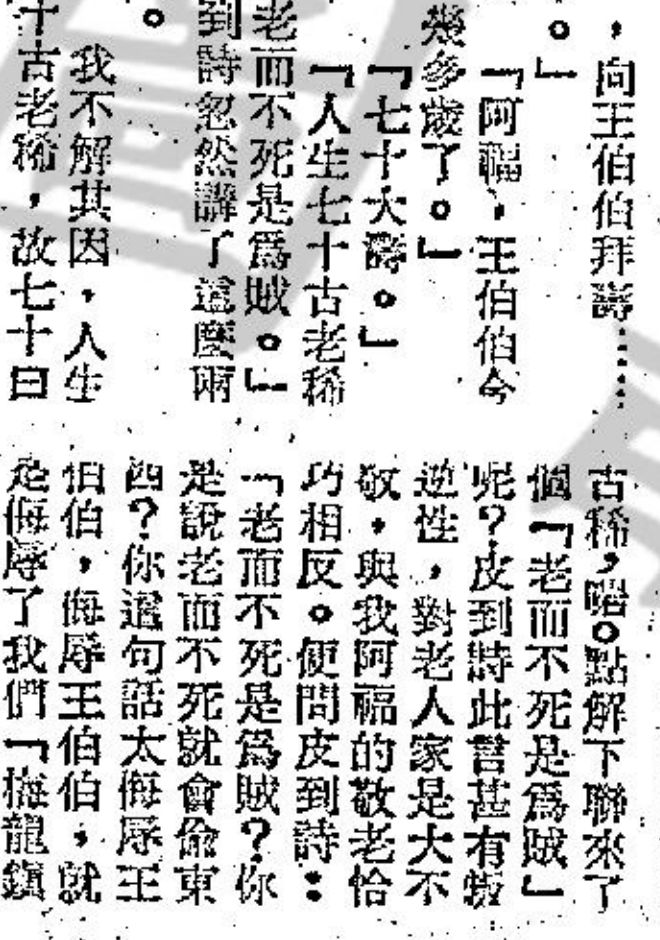 ，向王伯伯拜壽……
。」
「阿福，王伯伯今
幾多歲了。」
「七十大壽。」
「人生七十古老稀
老而不死是爲賊。」
到詩忽然講了這麼兩
。
我不解其因，人生
十古老稀，故七十曰
古稀，唔。點解下聯來了
個「老而不死是爲賊」
呢？皮到詩此言甚有叛
逆性，對老人家是大不
敬，與我阿福的敬老恰
巧相反。便問皮到詩：
「老而不死是爲賊？你
是說老而不死就會偷東
西？你這句話太侮辱王
伯伯，侮辱王伯伯，就
是侮辱了我們「梅龍鎮